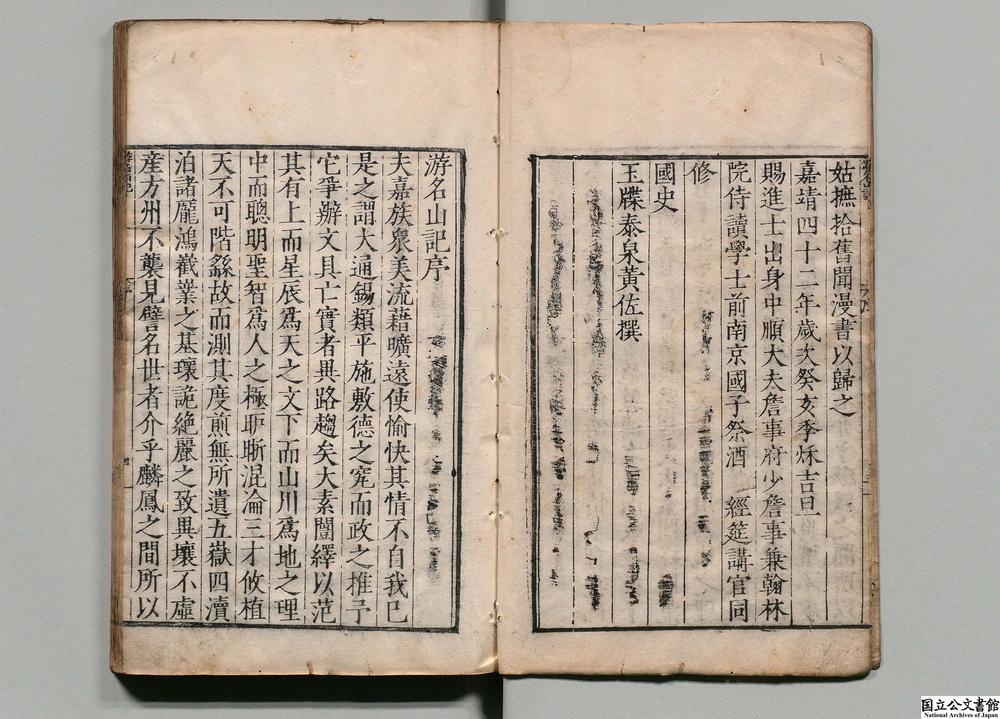 姑摭拾舊聞漫書以歸之
嘉靖四十二年歲次癸亥季秌吉旦
賜進士出身中順大夫詹事府少詹事兼翰林
院侍讀學士前南京國子祭酒 經筵講官同
修
國史
玉牒泰泉黃佐撰
游名山記序
夫嘉族衆美流藉曠遠使愉快其情不自我已
是之謂大通錫類平施敷德之宄而政之推予
它爭辦文具亡實者異路趨矣大素闓繹以范
其有上而星辰為天之文下而山川為地之理
中而聰明聖智為人之極昈昕混淪三才攸植
天不可階繇故而測其度煎無所遺五嶽四瀆
泊諸龐鴻嶻業之基瓌詭絕麗之致異壤不虛
産方州不襲見譬名世者介乎麟鳳之間所以
国立公文書館
National Archives of Japan